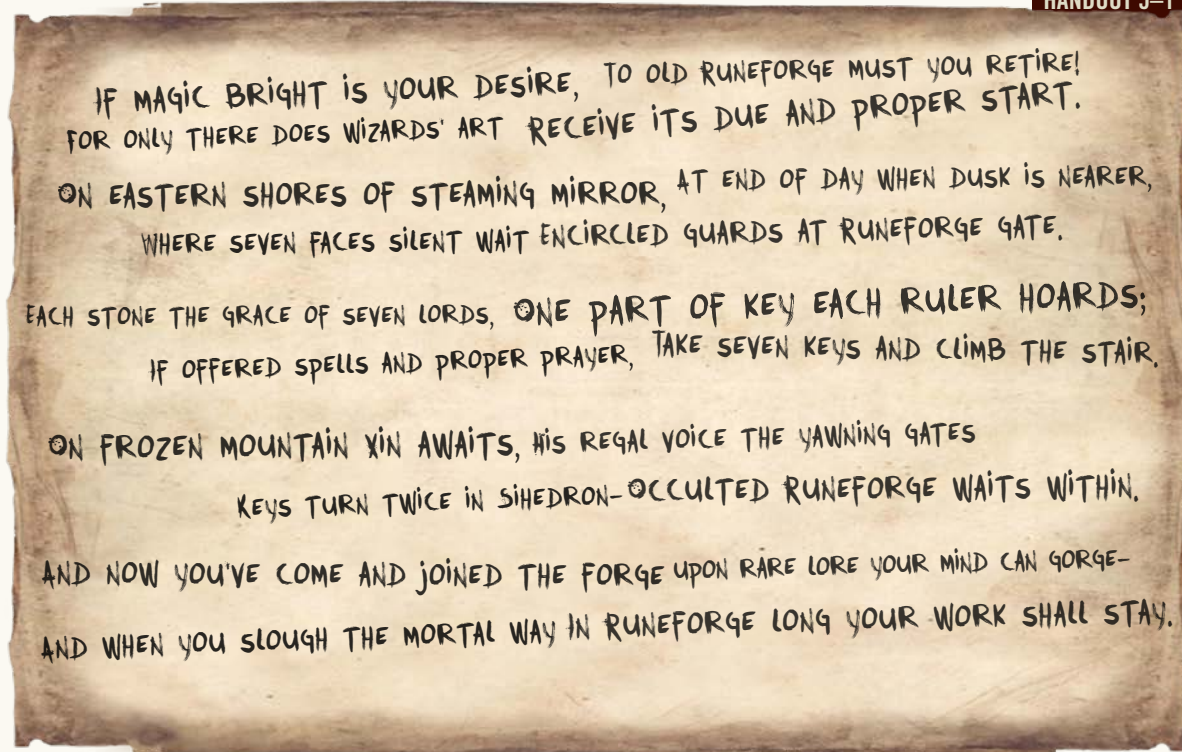 HANDOUT 5–1
IF MAGIC BRIGHT IS YOUR DESIRE, TO OLD RUNEFORGE MUST YOU RETIRE!
FOR ONLY THERE DOES WIZARDS' ART RECEIVE ITS DUE AND PROPER START.
ON EASTERN SHORES OF STEAMING MIRROR, AT END OF DAY WHEN DUSK IS NEARER,
WHERE SEVEN FACES SILENT WAIT ENCIRCLED GUARDS AT RUNEFORGE GATE.
EACH STONE THE GRACE OF SEVEN LORDS, ONE PART OF KEY EACH RULER HOARDS;
IF OFFERED SPELLS AND PROPER PRAYER, TAKE SEVEN KEYS AND CLIMB THE STAIR.
ON FROZEN MOUNTAIN XIN AWAITS, HIS REGAL VOICE THE YAWNING GATES
KEYS TURN TWICE IN SIHEDRON–OCCULTED RUNEFORGE WAITS WITHIN.
AND NOW YOU'VE COME AND JOINED THE FORGE UPON RARE LORE YOUR MIND CAN GORGE–
AND WHEN YOU SLOUGH THE MORTAL WAY IN RUNEFORGE LONG YOUR WORK SHALL STAY.